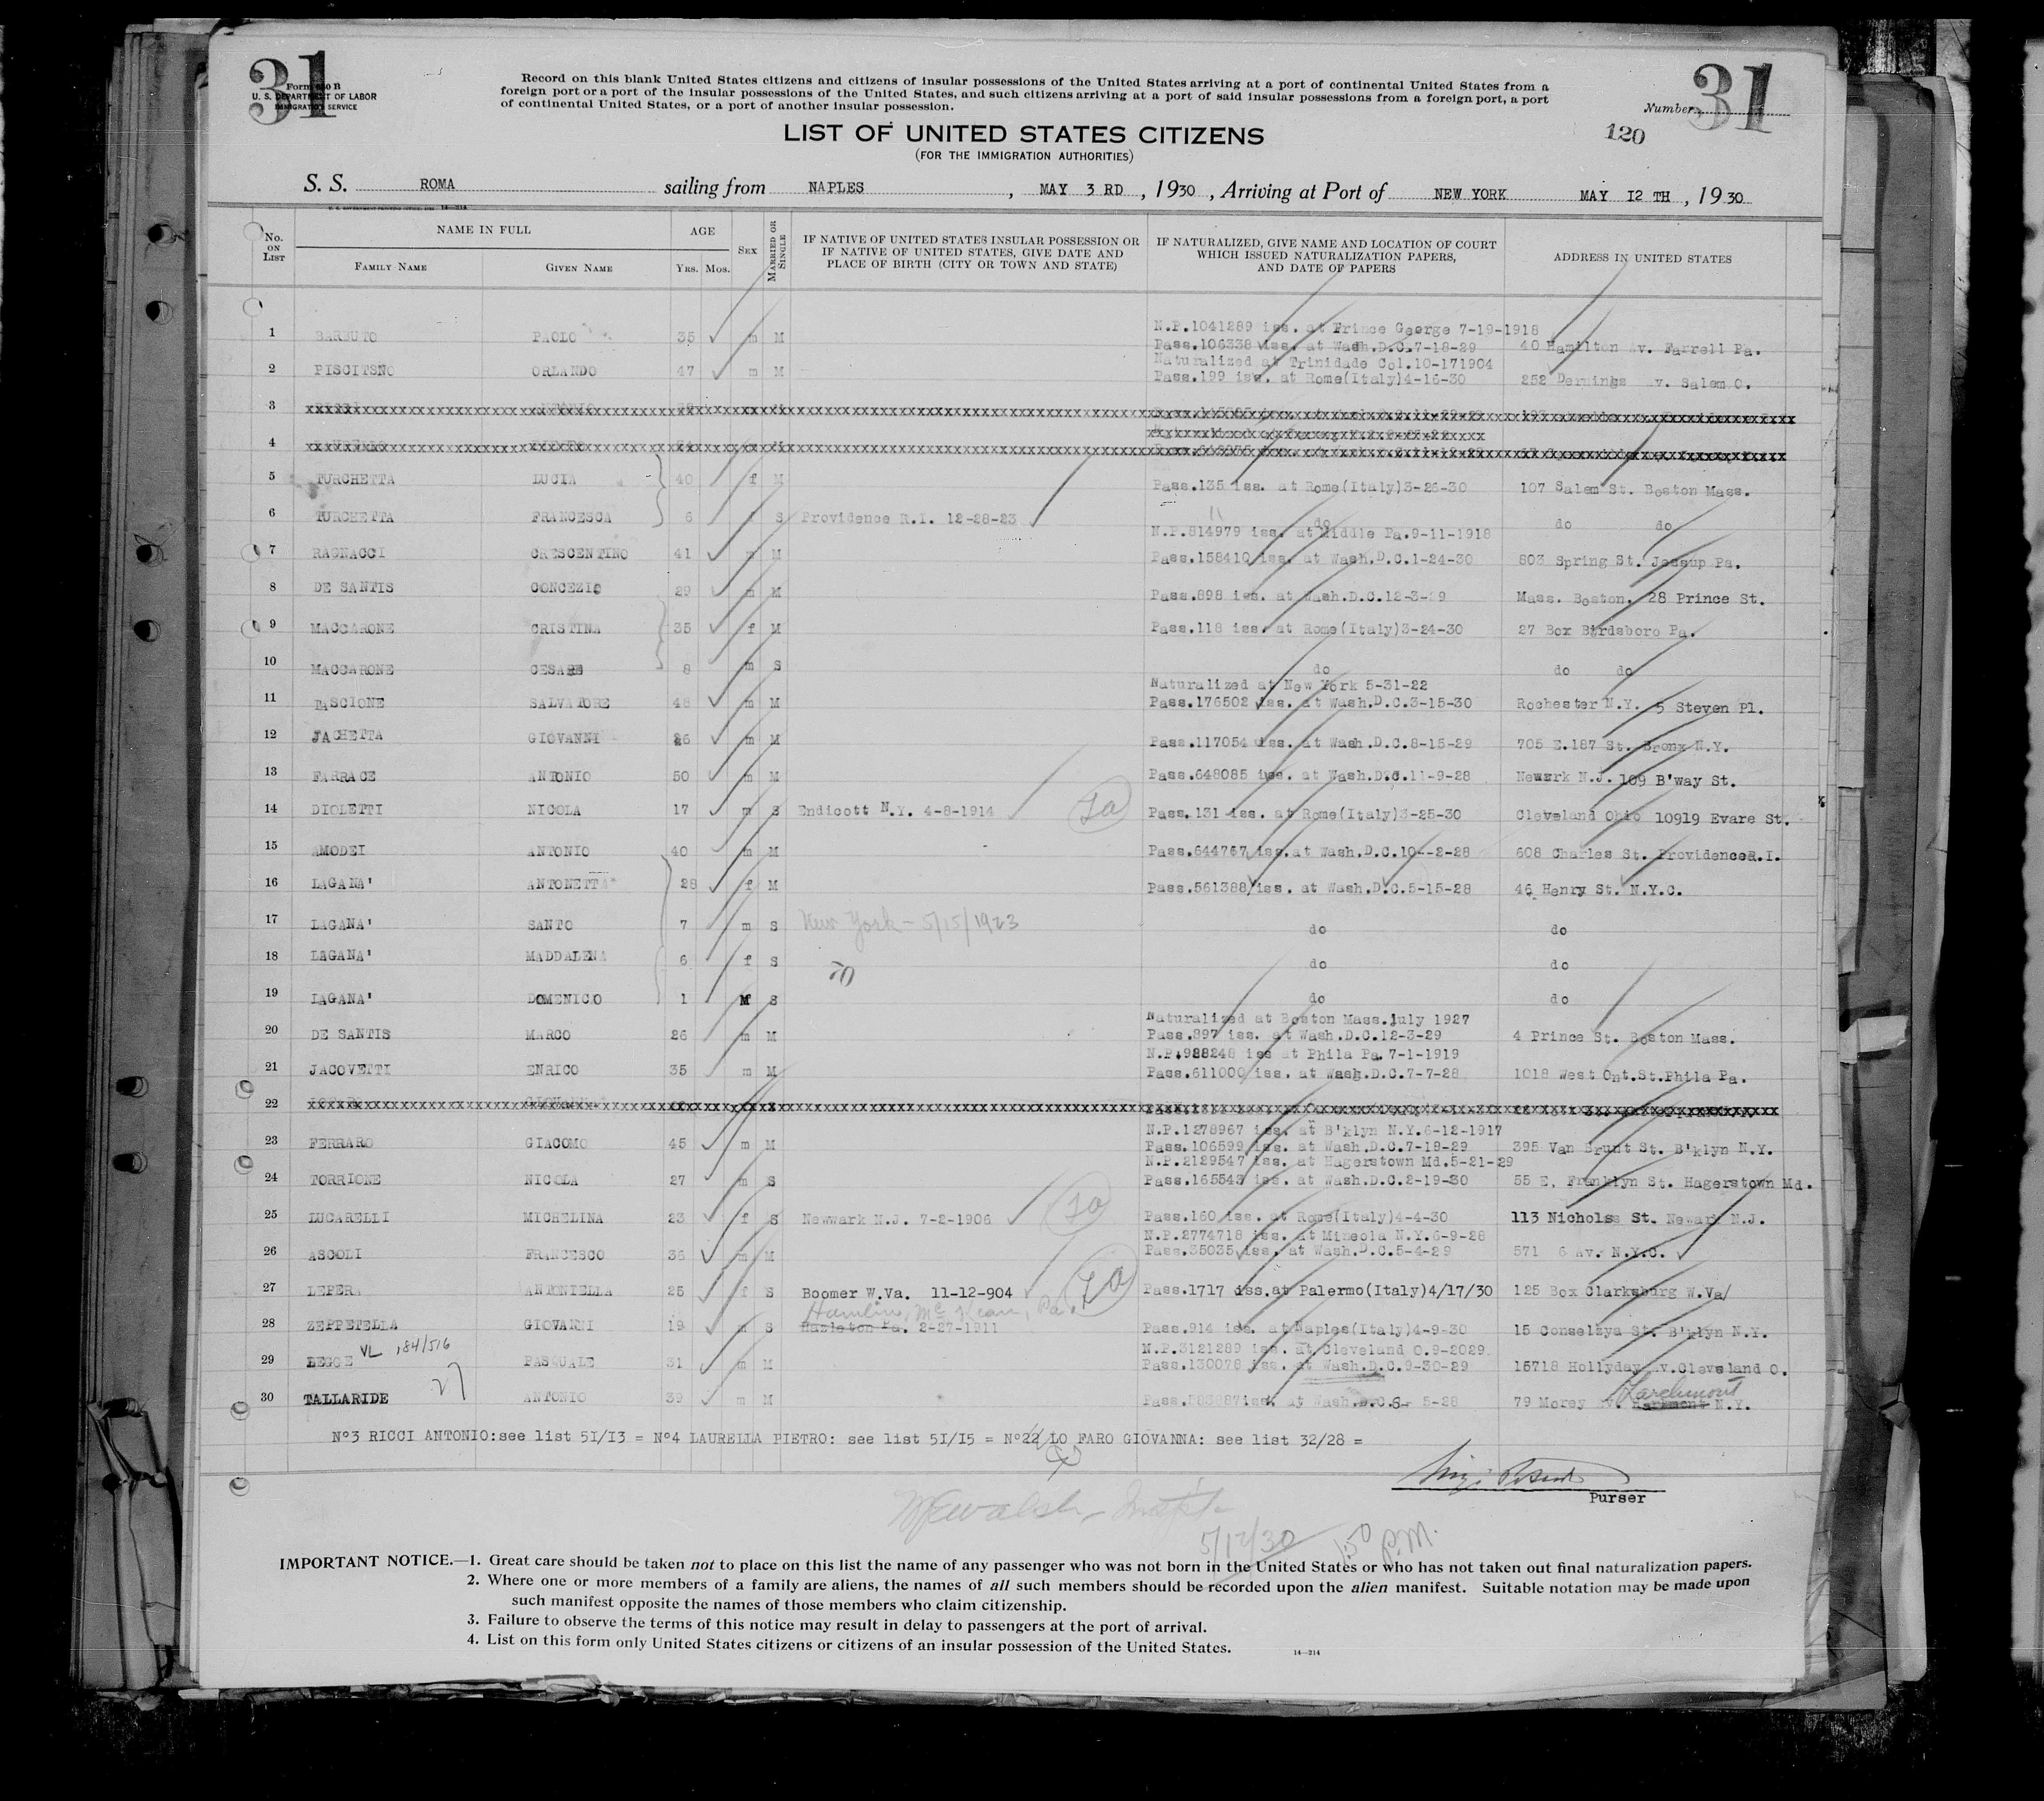 31
31
Form 630 B
U. S. DEPARTMENT OF LABOR
IMMIGRATION SERVICE
Record on this blank United States citizens and citizens of insular possessions of the United States arriving at a port of continental United States from a
foreign port or a port of the insular possessions of the United States, and such citizens arriving at a port of said insular possessions from a foreign port, a port
of continental United States, or a port of another insular possession.
Number
120
LIST OF UNITED STATES CITIZENS
(FOR THE IMMIGRATION AUTHORITIES)
S. S. ROMA sailing from NAPLES, MAY 3 RD, 1930, Arriving at Port of NEW YORK MAY I2 TH, 1930
No. on List
NAME IN FULL
FAMILY NAME GIVEN NAME
AGE
YRS. MOS.
SEX
MARRIED OR SINGLE
IF NATIVE OF UNITED STATES INSULAR POSSESSION OR
IF NATIVE OF UNITED STATES, GIVE DATE AND
PLACE OF BIRTH (CITY OR TOWN AND STATE)
IF NATURALIZED, GIVE NAME AND LOCATION OF COURT
WHICH ISSUED NATURALIZATION PAPERS,
AND DATE OF PAPERS
ADDRESS IN UNITED STATES
N.P.1041289 iss. at Prince George 7-19-1918
1 BARBUTO PAOLO 35 m M Pass.106338 iss. at Wash.D.C.7-18-29 40 Hamilton Av. Farrell Pa.
Naturalized at Trinidade Col.10-171904
2 PISCITSNO ORLANDO 47 m M Pass.199 iss. at Rome(Italy)4-16-30 252 Dernings Av. Salem O.
3
4
5 TURCHETTA LUCIA 40 f M Pass.135 iss. at Rome(Italy)3-26-30 107 Salem St. Boston Mass.
6 TURCHETTA FRANCESCA 6 f S Providence R.I. 12-28-23 do do do
N.P.814979 iss. at Middle Pa.9-11-1918
7 RAGNACCI CRESCENTINO 41 m M Pass.158410 iss. at Wash.D.C.1-24-30 803 Spring St. Jessup Pa.
8 DE SANTIS CONCEZIO 29 m M Pass.898 iss. at Wash.D.C.12-3-29 Mass. Boston. 28 Prince St.
9 MACCARONE CRISTINA 35 f M Pass.118 iss. at Rome(Italy)3-24-30 27 Box Birdsboro Pa.
10 MACCARONE CESARE 8 m S do do do
Naturalized at New York 5-31-22
11 PASCIONE SALVATORE 48 m M Pass.176502 iss. at Wash.D.C.3-15-30 Rochester N.Y. 5 Steven Pl.
12 JACHETTA GIOVANNI 26 m M Pass.117054 iss. at Wash.D.C.8-15-29 705 E.187 St. Bronx N.Y.
13 FARRACE ANTONIO 50 m M Pass.648085 iss. at Wash.D.C.11-9-28 Newark N.J. 109 B'way St.
14 DIOLETTI NICOLA 17 m S Endicott N.Y. 4-8-1914 Pass.131 iss. at Rome(Italy)3-25-30 Cleveland Ohio 10919 Evare St.
15 AMODEI ANTONIO 40 m M Pass.644767 iss.at Wash.D.C.10--2-28 608 Charles St. ProvidenceR.I.
16 LAGANA' ANTONETTA 28 f M Pass.561388 iss. at Wash.D.C.5-15-28 46 Henry St. N.Y.C.
17 LAGANA' SANTO 7 m S New York - 5/15/1923 do do
18 LAGANA' MADDALENA 6 f S do do
19 LAGANA' DOMENICO 1 M S do do
Naturalized at Boston Mass.july 1927
20 DE SANTIS MARCO 26 m M Pass.897 iss. at Wash.D.C.12-3-29 4 Prince St. Boston Mass.
N.P.928248 iss at Phila Pa. 7-1-1919
21 JACOVETTI ENRICO 35 m M Pass.611000 iss. at Wash.D.C.7-7-28 1018 West Ont.St.Phila Pa.
22
N.P.1278967 iss. at B'klyn N.Y.6-12-1917
23 FERRARO GIACOMO 45 m M Pass.106599 iss. at Wash.D.C.7-18-29 395 Van Brunt St. B'klyn N.Y.
N.P.2129547 iss. at Hagerstown Md.5-21-29
24 TORRIONE NICOLA 27 m S Pass.165543 iss. at Wash.D.C.2-19-30 55 E. Franklyn St. Hagerstown Md.
25 LUCARELLI MICHELINA 23 f S Newwark N.J. 7-2-1906 Pass.160 iss. at Rome(Italy)4-4-30 113 Nichols St. Newark N.J.
N.P.2774718 iss. at Mineola N.Y.6-9-28
26 ASCOLI FRANCESCO 36 m M Pass.35035 iss. at Wash.D.C.5-4-29 571 6 Av. N.Y.C.
27 LEPERA ANTONIELLA 25 f S Boomer W.Va. 11-12-904 Pass.1717 iss.at Palermo(Italy)4/17/30 125 Box Clarksburg W.Va/
Hamlin, McKean, Pa.
28 ZEPPETELLA GIOVANNI 19 m S Hazleton Pa. 2-27-1911 Pass.914 iss. at Naples(Italy)4-9-30 15 Conselzya St. B'klyn N.Y.
N.P.3121289 iss. at Cleveland O.9-2029
29 LEGOE VL 184/516 PASQUALE 31 m M Pass.130078 iss. at Wash.D.C.9-30-29 15718 Hollyday Av.Cleveland O.
Larchmont
30 TALLARIDE 27 ANTONIO 39 m M 79 Morey Av. N.Y.
Nº3 RICCI ANTONIO:see list 5I/I3 = Nº4 LAURELLA PIETRO: see list 5I/I5 = Nº22 LO FARO GIOVANNA: see list 32/28 =
Purser
5/12/30 1:50 P.M.
IMPORTANT NOTICE.—1. Great care should be taken not to place on this list the name of any passenger who was not born in the United States or who has not taken out final naturalization papers.
2. Where one or more members of a family are aliens, the names of all such members should be recorded upon the alien manifest. Suitable notation may be made upon
such manifest opposite the names of those members who claim citizenship.
3. Failure to observe the terms of this notice may result in delay to passengers at the port of arrival.
4. List on this form only United States citizens or citizens of an insular possession of the United States.
14—214